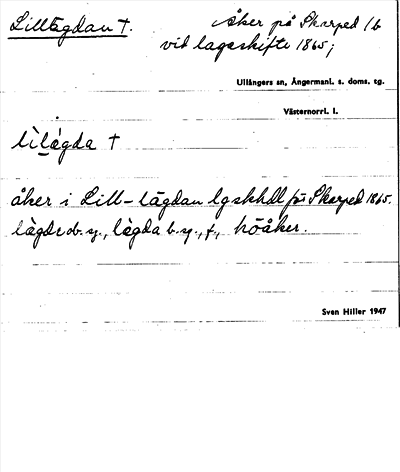 Lillägdan †.
Åker på Skarped 1/6
vid lagaskifte 1865;
Ullångers sn, Ångermanl. s. doms. tg.
Västernorrl. l.
lìlǻgda †
åker i Lill-lägdan lgskhdl för Skarped 1865.
lägde ob. sg., lägda b. sg., f., höåker.
Sven Hiller 1947